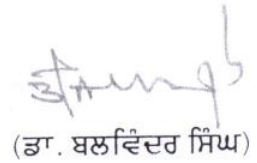 (ਡਾ. ਬਲਵਿੰਦਰ ਸਿੰਘ)